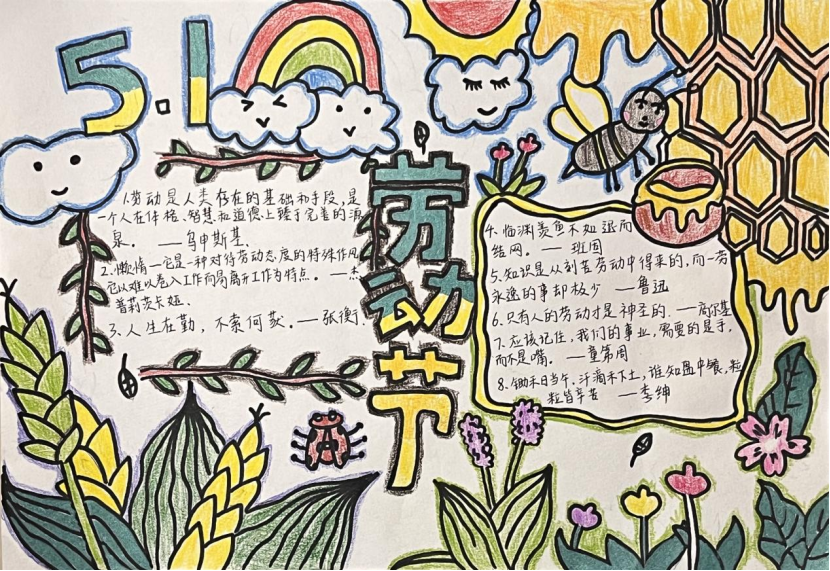 5.1
劳动节
1.劳动是人类存在的基础和手段,是
一个人在体格、智慧和道德上臻于完善的源
泉。——乌申斯基.
2.懒惰——它是一种对待劳动态度的特殊作风
它以难以卷入工作而易离开工作为特点。——杰
普莉茨卡娅.
3.人生在勤,不索何获。——张衡.
4.临渊羡鱼不如退而
结网。——班固
5.知识是从刻苦劳动中得来的,而一劳
永逸的事却极少——鲁迅
6.只有人的劳动才是神圣的.——高尔基
7.应该记住,我们的事业,需要的是手,
而不是嘴。——童第周
8.锄禾日当午.汗滴禾下土,谁知盘中餐,粒
粒皆辛苦——李绅